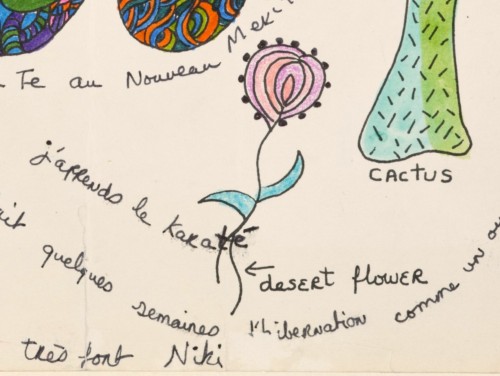 Te au Nouveau
CACTUS
j'apprends le Karaté
ait quelques semaines l'Hibernation comme un
← desert flower
très fort Niki